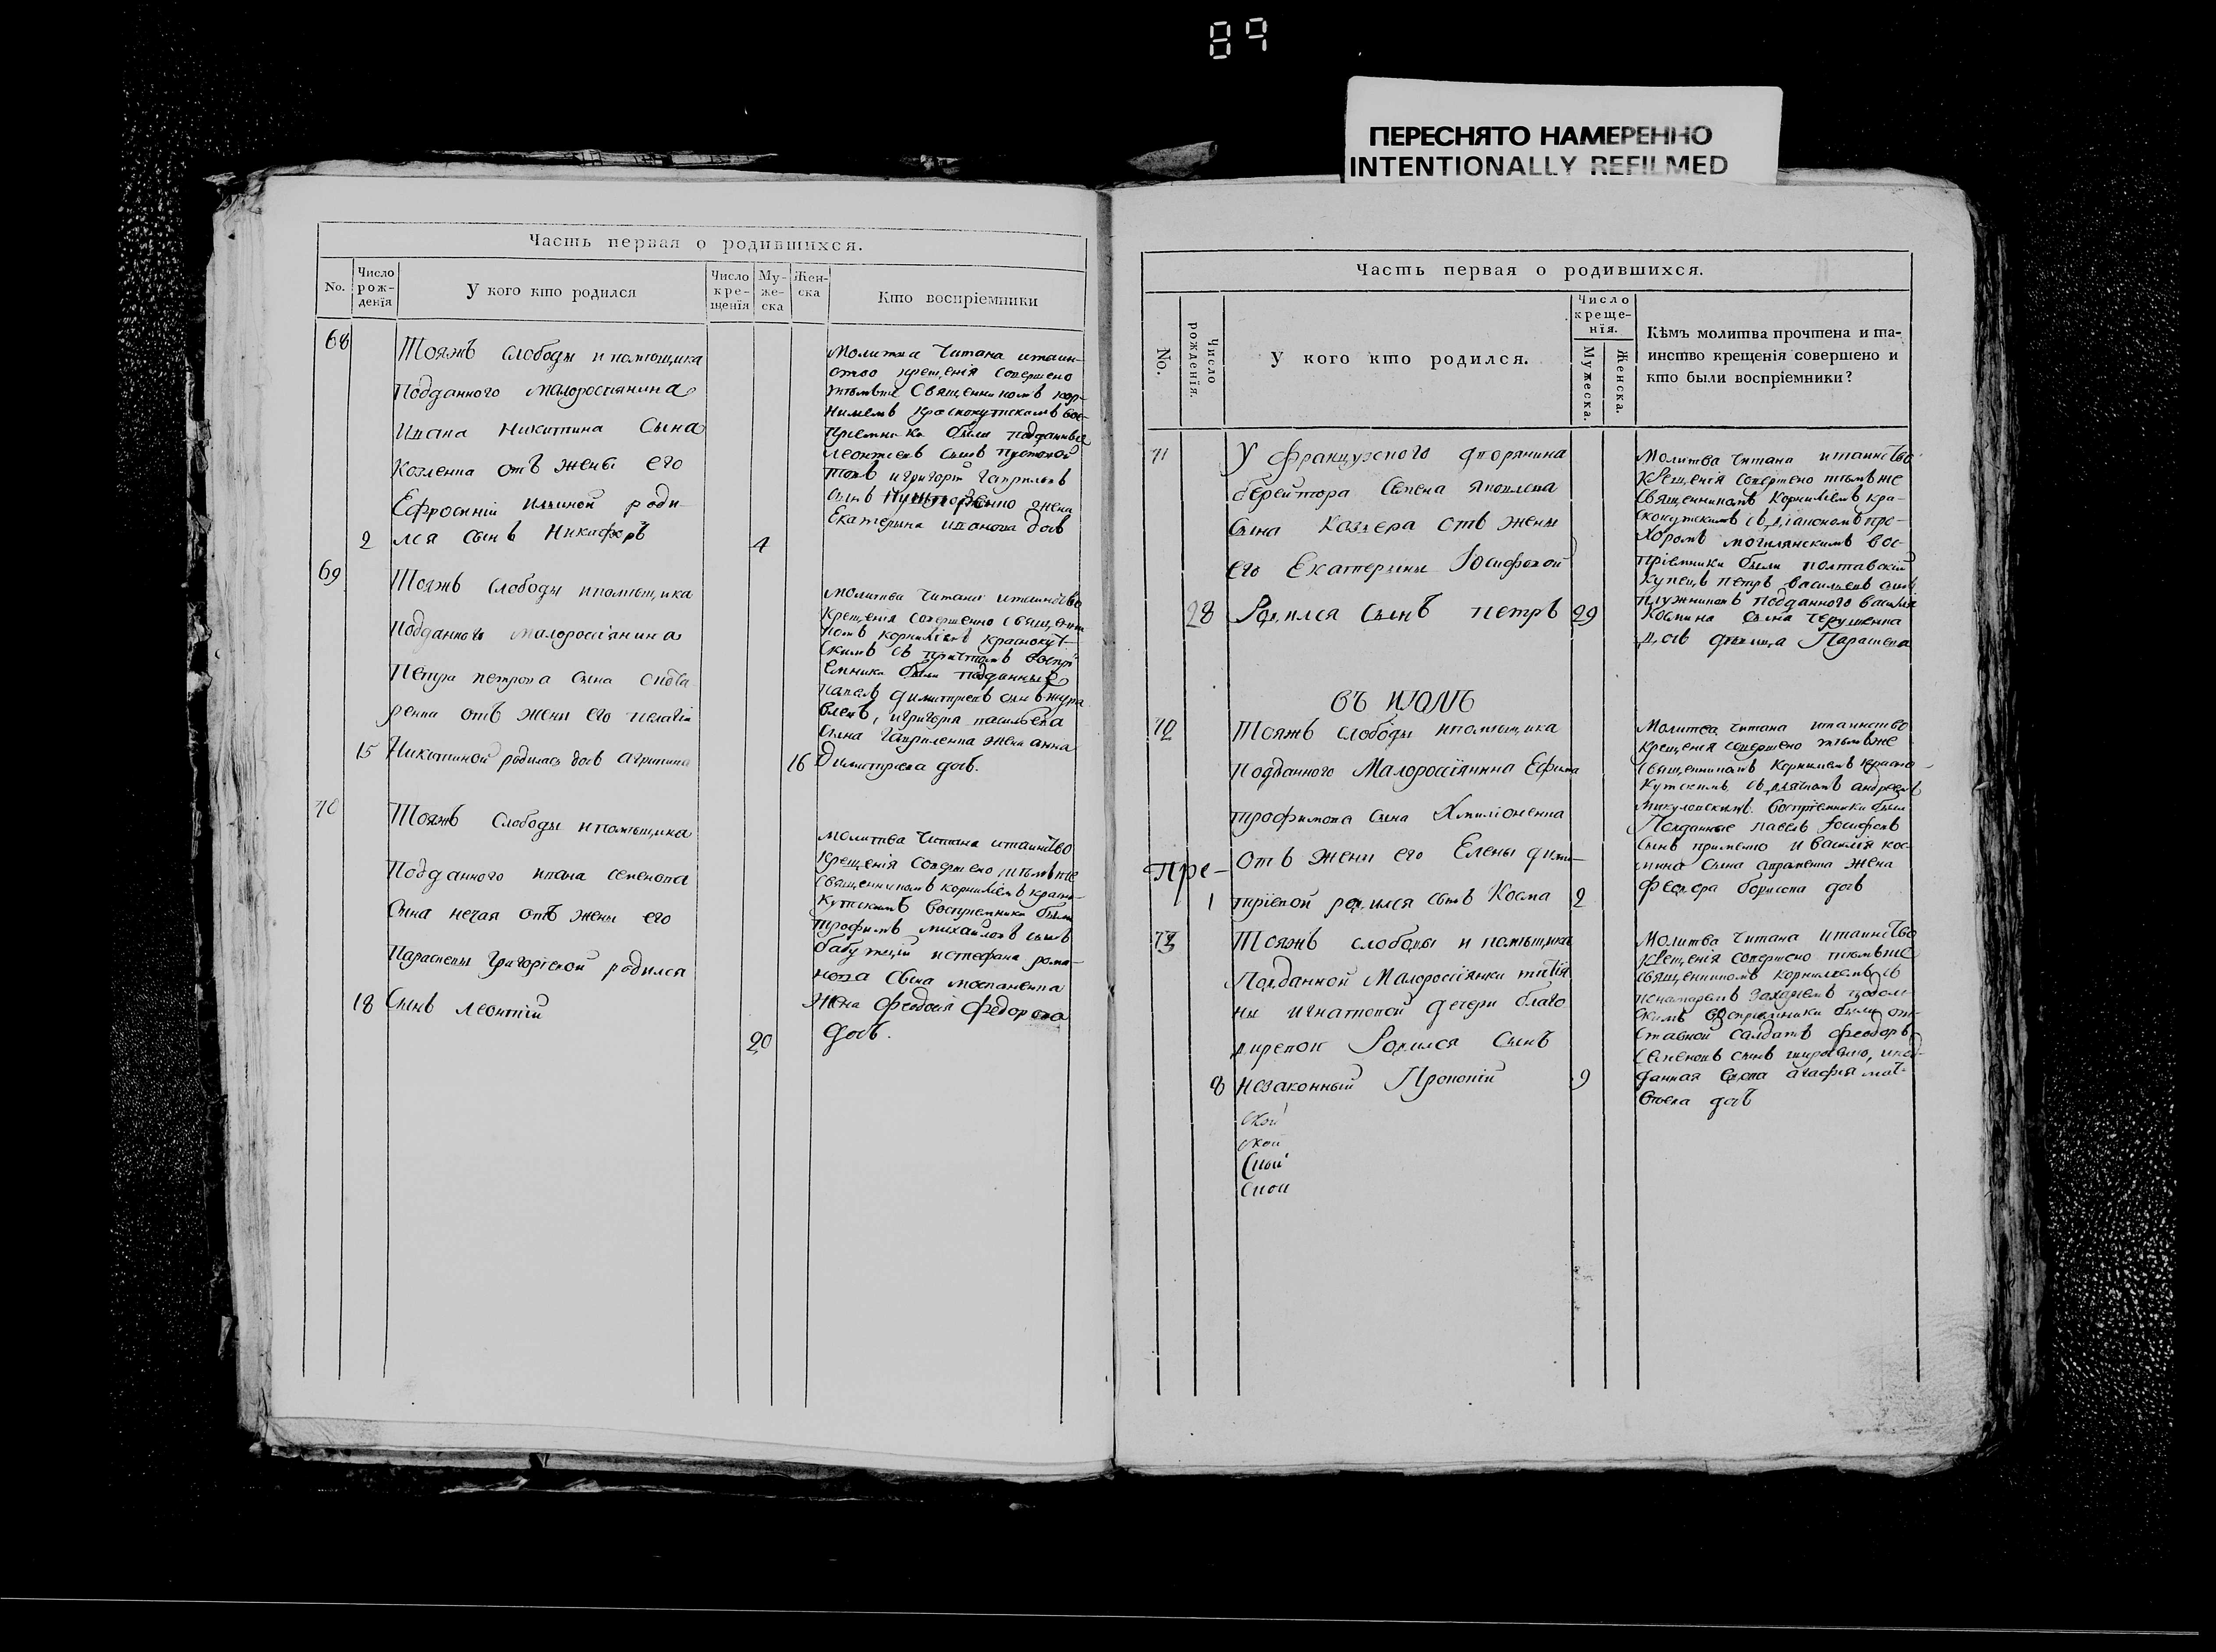 89
ПЕРЕСНЯТО НАМЕРЕННО
INTENTIONALLY REFILMED
Часть первая о родившихся.
No.
Число рож-денія
У кого кто родился
Число кре-щенія
Му-же-ска
Жен-ска
Кто воспріемники
68
Тояжъ слободы и помѣщика
Подданного Малороссіянина
Ивана Никитина Сына
Козленка отъ жены его
Ефросиніи Ильиной роди
2 лся сынъ Никифоръ 4
Молитва Читана итаин-
ство крещенія совершено
тѣмъже Священникомъ кор-
ниліемъ Краснокутскимъ вос-
пріемники были подданныя
Леонтіевъ сынъ
игригорія Гаврилова
сына жена
Екатерина иванова дочь
69
Тояжъ Слободы ипомѣщика
Подданного малороссіянина
Петра петрова сына
ренка отъ жены его пелагіи
15 Никитиной родилась дочь агрипина 16
Молитва Читана итаинство
Крещенія совершенно священи
комъ корниліемъ краснокут-
скимъ съ причтомъ воспрі
емники были подданныя
димитріевъ сынъ жура
влевъ, игригорія васильева
сына Гавриленка жена анна
Димитріева дочь.
70
Тояжъ Слободы ипомѣщика
Подданного ивана семенова
Сына нечая отъ жены его
Параскевы григоріевой родился
18 Сынъ леонтій 20
молитва Читана итаинство
Крещенія совершено тѣмъже
Священникомъ корниліемъ красно-
кутскимъ воспріемники были
трофимъ михайловъ сынъ
истефана рома-
нова сына
жена феодосія федорова
дочь.
Часть первая о родившихся.
No.
Число рожденія.
У кого кто родился.
Число креще-нія.
Мужеска.
Женска.
Кѣмъ молитва прочтена и та-
инство крещенія совершено и
кто были воспріемники?
71
У французского дворянина
берейтора Семена Яковлева
Сына отъ жены
его Екатерины Іосифовой
28 Родился Сынъ петръ 29
Молитва Читана итаинство
Крещенія совершено тѣмъже
Священникомъ Корниліемъ кра-
снокутскимъ съ діакономъ про-
хоромъ могилянскимъ вос-
пріемники были полтавскій
Купецъ петръ васильевъ сынъ
подданного василія
Космина сына
дочь девица Параскева
Въ июлѣ
72
Тояжъ слободы ипомѣщика
подданного Малороссіянина Ефима
трофимова сына
отъ жены его Елены дими-
Пре-
1 тріевой родился сынъ Косма 2
Молитва Читана итаинство
крещенія совершено тѣмъже
Священникомъ Корниліемъ красно-
кутскимъ съ дьячкомъ андреемъ
Воспріемники были
Подданные павелъ Іосифовъ
Сынъ и василія кос-
мина сына жена
федора борисова дочь
73
Тояжъ слободы и помѣщика
Подданной Малороссіянки татія
ны игнатовой дочери благо
Родился Сынъ
8 незаконный Прокопій 9
Молитва Читана итаинство
крещенія совершено тѣмъже
священникомъ корниліемъ съ
понамаремъ Захаріемъ
скимъ воспріемники были от-
ставной салдатъ феодоръ
семеновъ сынъ
данная вдова агафія мат-
веева дочь
ской
ской